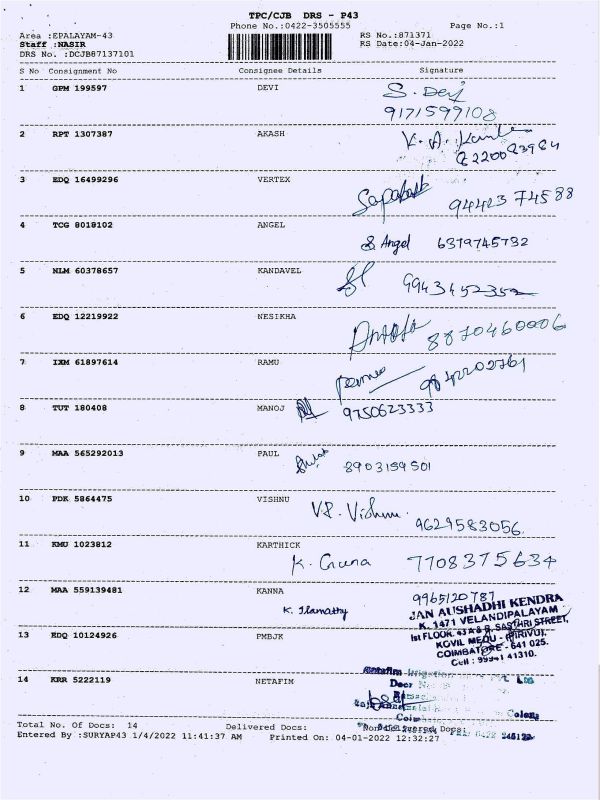 TPC/CJB DRS - P43
Phone No.:0422-3505555 Page No.:1
Area :EPALAYAM-43 RS No.:871371
Staff :NASIR RS Date:04-Jan-2022
DRS No. :DCJB87137101
S No Consignment No Consignee Details Signature
1 GPM 199597 DEVI S. Devi
9171599108
2 RPT 1307387 AKASH K. A.
8220083984
3 EDQ 16499296 VERTEX 94423 74588
4 TCG 8018102 ANGEL S Angel 6379745732
5 NLM 60378657 KANDAVEL 9943452352
6 EDQ 12219922 NESIKHA 8870460006
7 IXM 61897614 RAMU
8 TUT 180408 MANOJ 9750623333
9 MAA 565292013 PAUL 8903159501
10 PDK 5864475 VISHNU VP. Vishnu.
9629583056
11 KMU 1023812 KARTHICK K. Guna 7708375634
12 MAA 559139481 KANNA K. Ilamathy 9965120787
JAN AUSHADHI KENDRA
K. 1471 VELANDIPALAYAM
Ist FLOOR, 43 A & B, SASTHRI STREET,
13 EDQ 10124926 PMBJK KOVIL MEDU - (PIRIVU),
COIMBATORE - 641 025.
Cell : 99941 41310.
14 KRR 5222119 NETAFIM Netafim Irrigation
Colony
Total No. Of Docs: 14 Delivered Docs: Non-Delivered Docs:
Entered By :SURYAP43 1/4/2022 11:41:37 AM Printed On: 04-01-2022 12:32:27